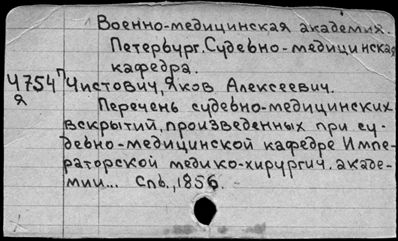 Военно-медицинская академия.
Петербург. Судебно-медицинская
кафедра.
Ч754п Чистович, Яков Алексеевич.
я
Перечень судебно-медицинских
вскрытий, произведенных при су-
дебно-медицинской кафедре Импе-
раторской медико-хирургич. акаде-
мии... Спб., 1856.